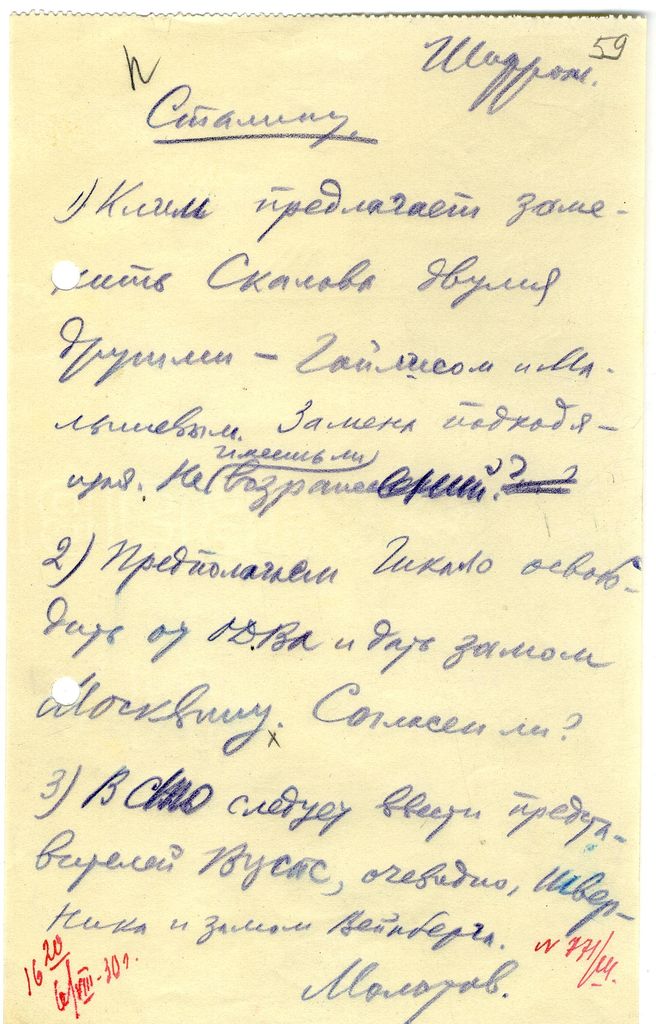 59
Шифром.
Сталину.
1) Клим предлагает заме-
нить Скалова двумя
другими – Гайлисом и Ма-
лышевым. Замена подходя-
имеешь ли
щая. Не возражений?
2) Предполагаем Гикало освобо-
дить от ОДВА и дать замом
Москвину. Согласен ли?
3) В СТО следует ввести предста-
вителей ВЦСПС, очевидно, Швер-
ника и замом Вейнберга.
Молотов.
16 20
6/VIII-30 г.
N 77/III.